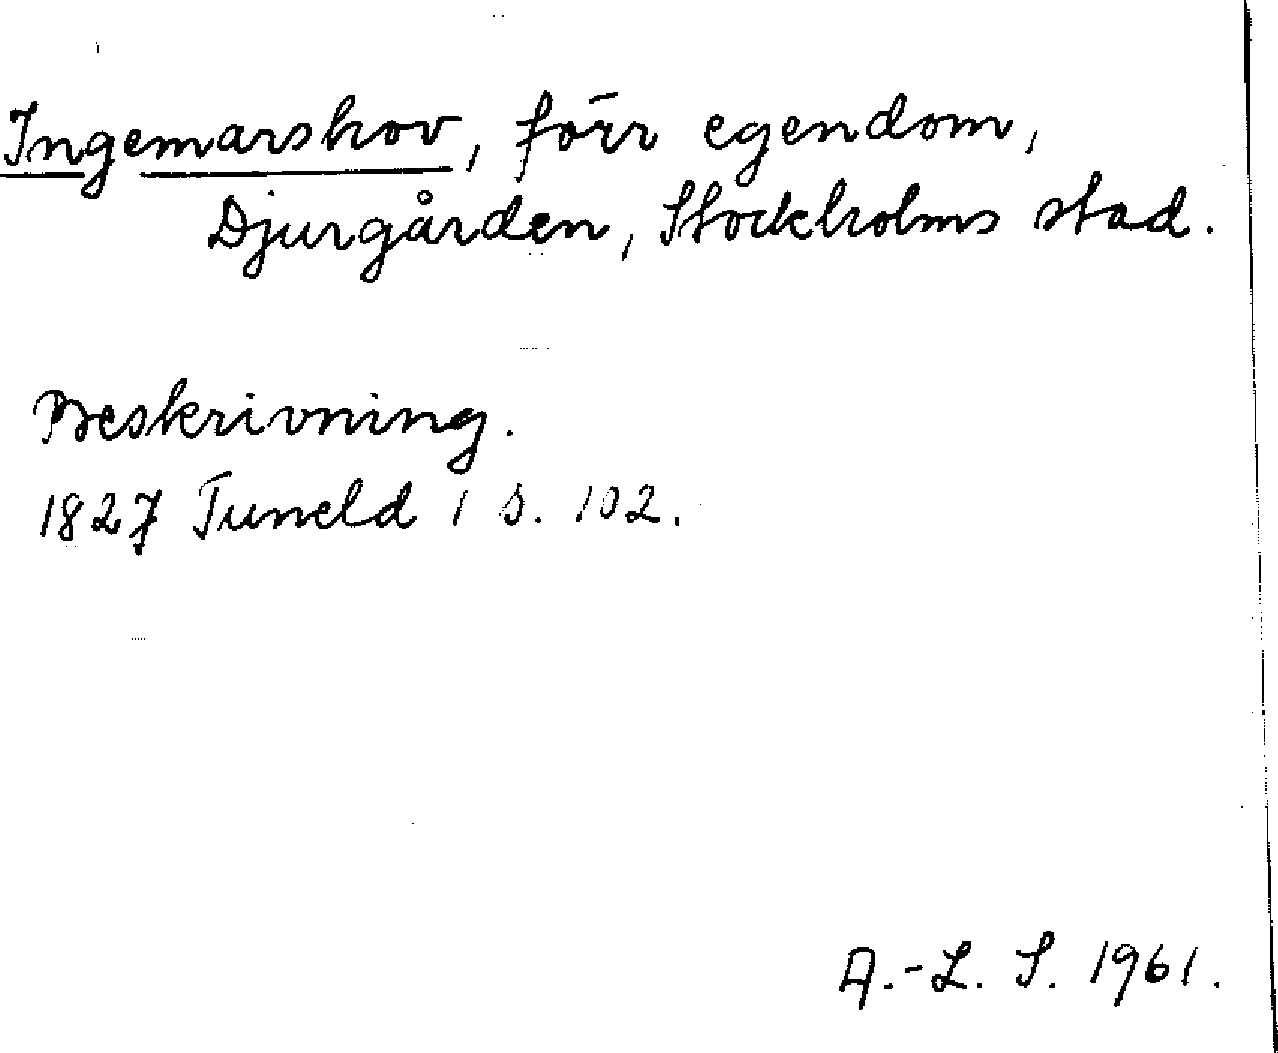 Ingemarshov, förr egendom,
Djurgården, Stockholms stad.
Beskrivning.
1827 Tuneld 1 s. 102.
A.-L. S. 1961.